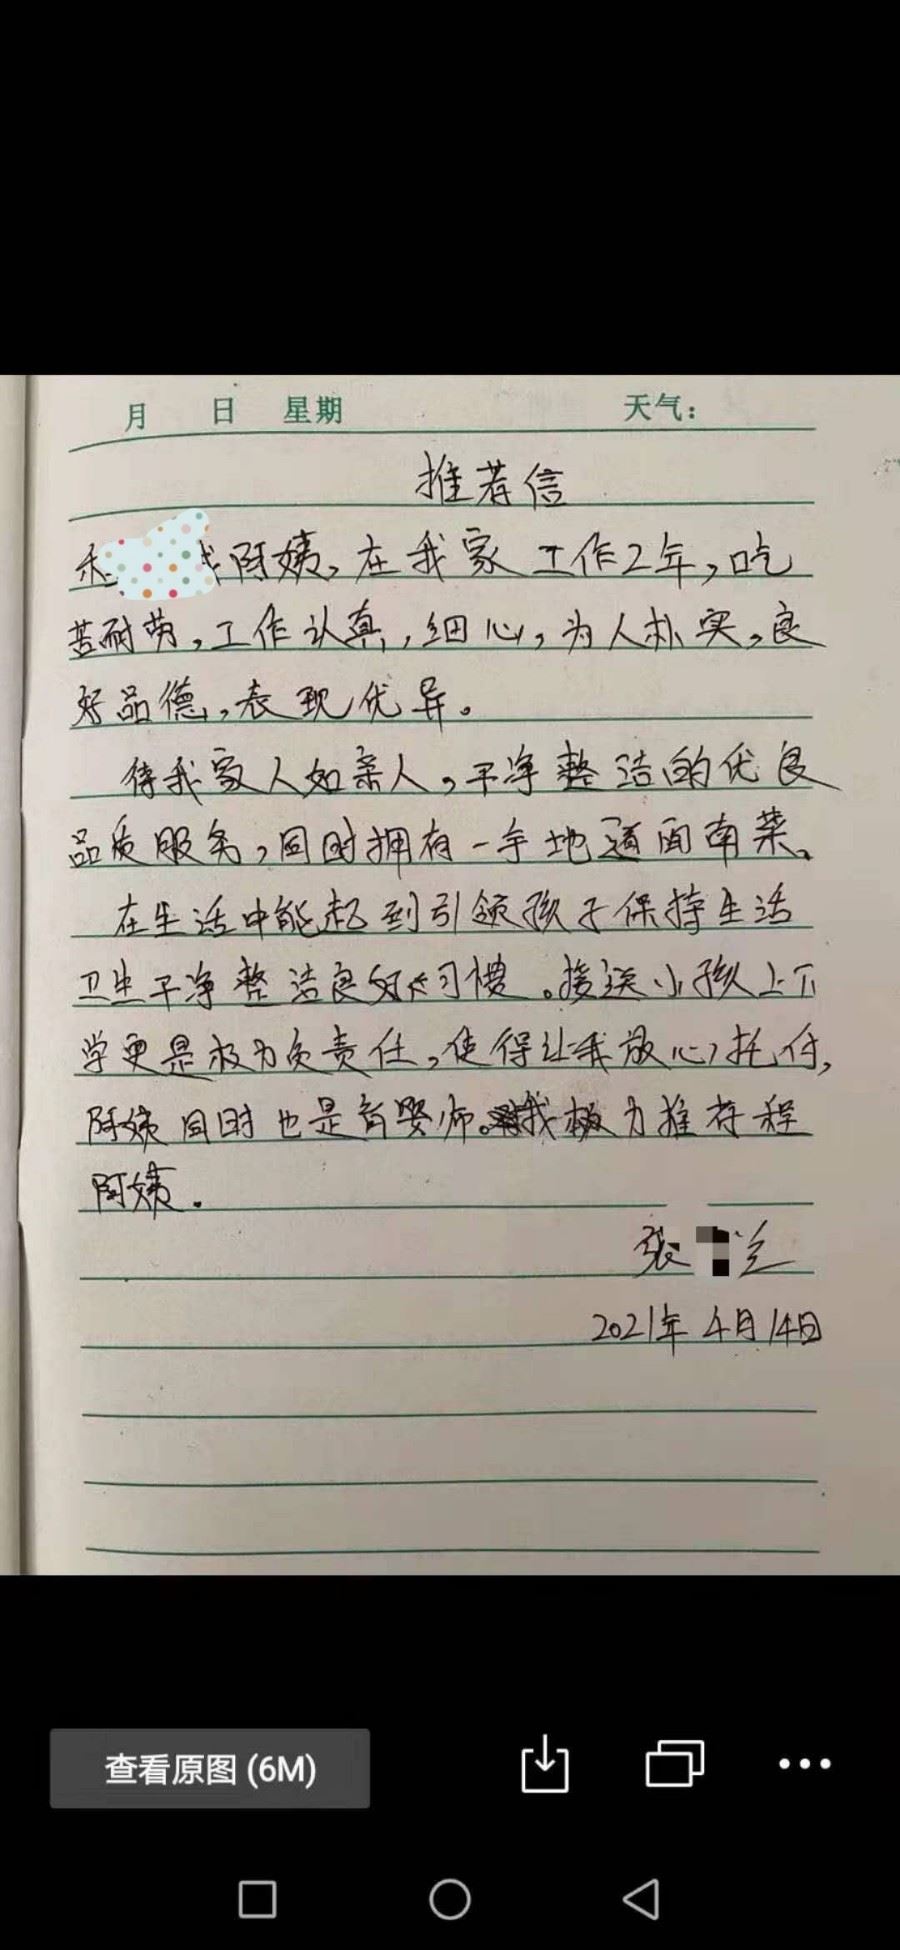 月 日 星期 天气：
推荐信
阿姨，在我家工作2年，吃
苦耐劳，工作认真，细心，为人朴实，良
好品德，表现优异。
待我家人如亲人，干净整洁的优良
品质服务，同时拥有一手地道面南菜。
在生活中能起到引领孩子保持生活
卫生干净整洁良好习惯。接送小孩上下
学更是极为负责任，使得让我放心托付，
阿姨同时也是育婴师。我极力推荐程
阿姨。
张
2021年4月14日
查看原图 (6M)